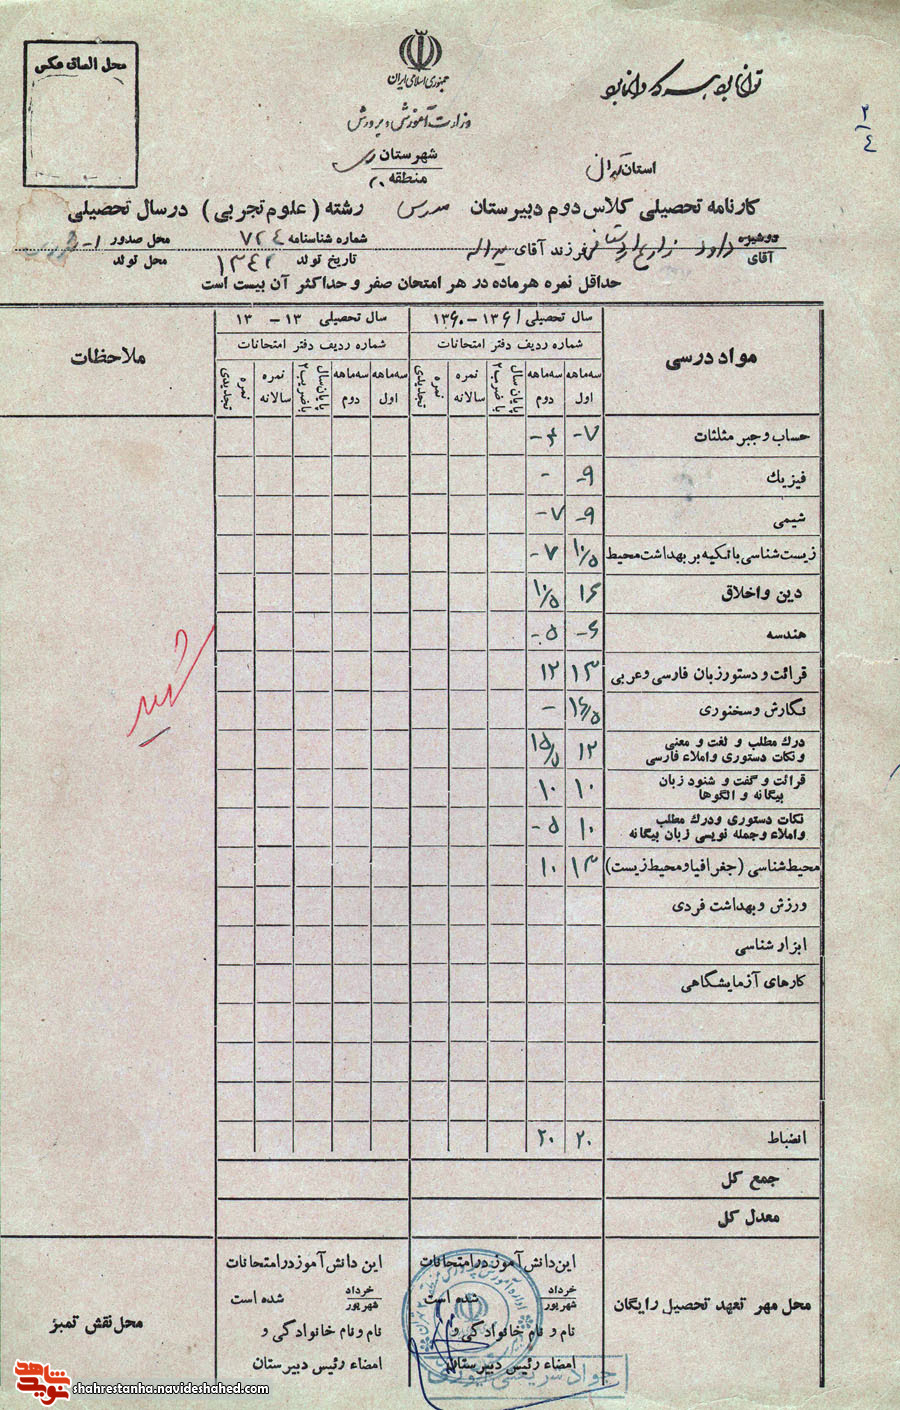 محل الصاق عکس
جمهوری اسلامی ایران
توانا بود هر که دانا بود
وزارت آموزش و پرورش
۲
۴
شهرستان ری
منطقه
استان تهران
کارنامه تحصیلی کلاس دوم دبیرستان مدرس رشته (علوم تجربی) در سال تحصیلی
دوشیزه
آقای داود زارع اردستانی فرزند آقای یداله شماره شناسنامه ۷۲۴ محل صدور
تاریخ تولد ۱۳۴۴ محل تولد
حداقل نمره هرماده در هر امتحان صفر و حداکثر آن بیست است
مواد درسی سال تحصیلی ۱۳۶۱-۱۳۶۰ سال تحصیلی ۱۳ - ۱۳ ملاحظات
شماره ردیف دفتر امتحانات شماره ردیف دفتر امتحانات
سه‌ماهه اول سه‌ماهه دوم پایان سال با ضریب ۲ نمره سالانه نمره تجدیدی سه‌ماهه اول سه‌ماهه دوم پایان سال با ضریب ۲ نمره سالانه نمره تجدیدی
حساب و جبر مثلثات ۷- ۴-
فیزیک ۹- -
شیمی ۹- ۷-
زیست‌شناسی با تکیه بر بهداشت محیط ۱۰/۵ ۷-
دین و اخلاق ۱۶ ۱۰/۵
هندسه ۶- ۵-
قرائت و دستور زبان فارسی و عربی ۱۳ ۱۲
نگارش و سخنوری ۱۶/۵ -
درک مطلب و لغت و معنی
و نکات دستوری و املاء فارسی ۱۲ ۱۵/۵
قرائت و گفت و شنود زبان
بیگانه و الگوها ۱۰ ۱۰
نکات دستوری و درک مطلب
و املاء و جمله نویسی زبان بیگانه ۱۰ ۵-
محیط‌شناسی (جغرافیا و محیط زیست) ۱۳ ۱۰
ورزش و بهداشت فردی
ابزار شناسی
کارهای آزمایشگاهی
شهید
انضباط ۲۰ ۲۰
جمع کل
معدل کل
محل مهر تعهد تحصیل رایگان
این دانش آموز در امتحانات
خرداد
شهریور شده است
نام و نام خانوادگی و
امضاء رئیس دبیرستان
این دانش آموز در امتحانات
خرداد
شهریور شده است
نام و نام خانوادگی و
امضاء رئیس دبیرستان
محل نقش تمبر
نوید شاهد
shahrestanha.navideshahed.com